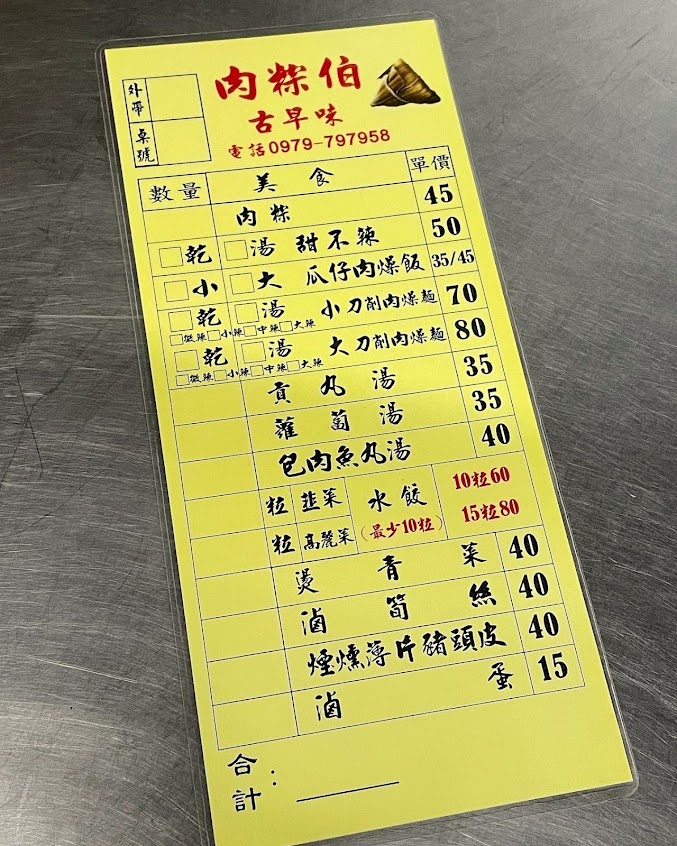 肉粽伯
古早味
電話0979-797958
外帶
桌號
數量 美食 單價
肉粽 45
□乾 □湯 甜不辣 50
□小 □大 瓜仔肉燥飯 35/45
□乾 □湯 小刀削肉燥麵 70
□微辣□小辣□中辣□大辣
□乾 □湯 大刀削肉燥麵 80
□微辣□小辣□中辣□大辣
貢丸湯 35
蘿蔔湯 35
包肉魚丸湯 40
粒 韭菜 水餃 10粒60
粒 高麗菜 (最少10粒) 15粒80
燙青菜 40
滷筍絲 40
煙燻薄片豬頭皮 40
滷蛋 15
合計: